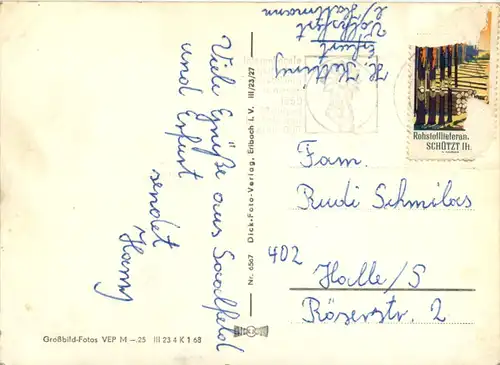 Viele Grüße aus Saalfeld
und Erfurt
sendet
Hans
Fam.
Rudi Schmilas
402
Halle/S
Röserstr. 2
Erfurt
Rohstofflieferan.
SCHÜTZT IH.
Nr. 6567 Dick-Foto-Verlag, Erlbach i. V. III/23/27
Großbild-Fotos VEP M –.25 III 23 4 K 1 68